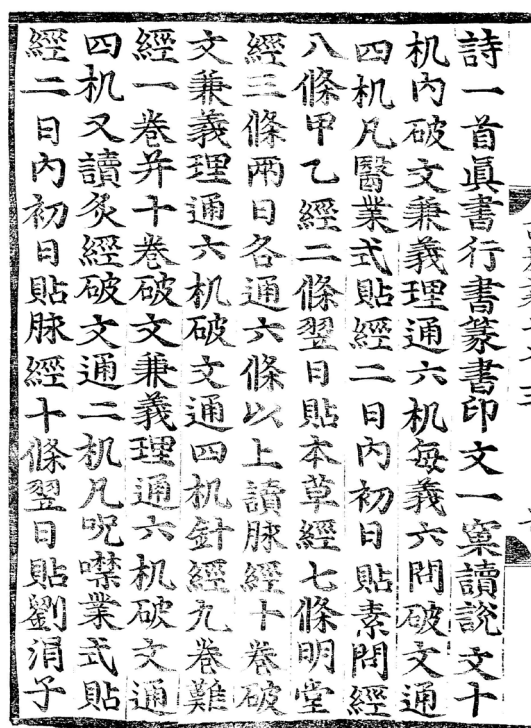 詩一首眞書行書篆書印文一窠讀說文十
机內破文兼義理通六机每義六問破文通
四机凡醫業式貼經二日內初日貼素問經
八條甲乙經二條翌日貼本草經七條明堂
經三條兩日各通六條以上讀脉經十卷破
文兼義理通六机破文通四机針經九卷難
經一卷并十卷破文兼義理通六机破文通
四机又讀灸經破文通二机凡呪噤業式貼
經二日內初日貼脉經十條翌日貼劉涓子